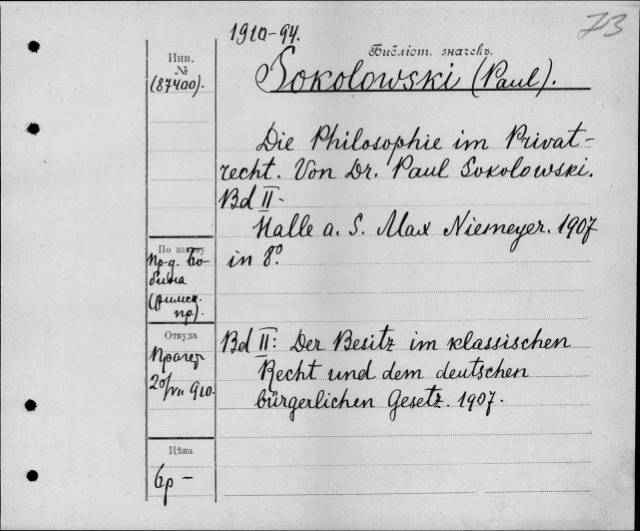 73
1910-94.
Библіот. значекъ.
Инв.
№
(87400).
Sokolowski (Paul).
Die Philosophie im Privat-
recht. Von Dr. Paul Sokolowski.
Bd II.
Halle a. S. Max Niemeyer. 1907
in 8°.
По заказу
пр-д. Бо-
бина
(римск.
пр).
Откуда
Прагер
20/VII 910.
Bd II: Der Besitz im klassischen
Recht und dem deutschen
bürgerlichen Gesetz. 1907.
Цѣна
6р -